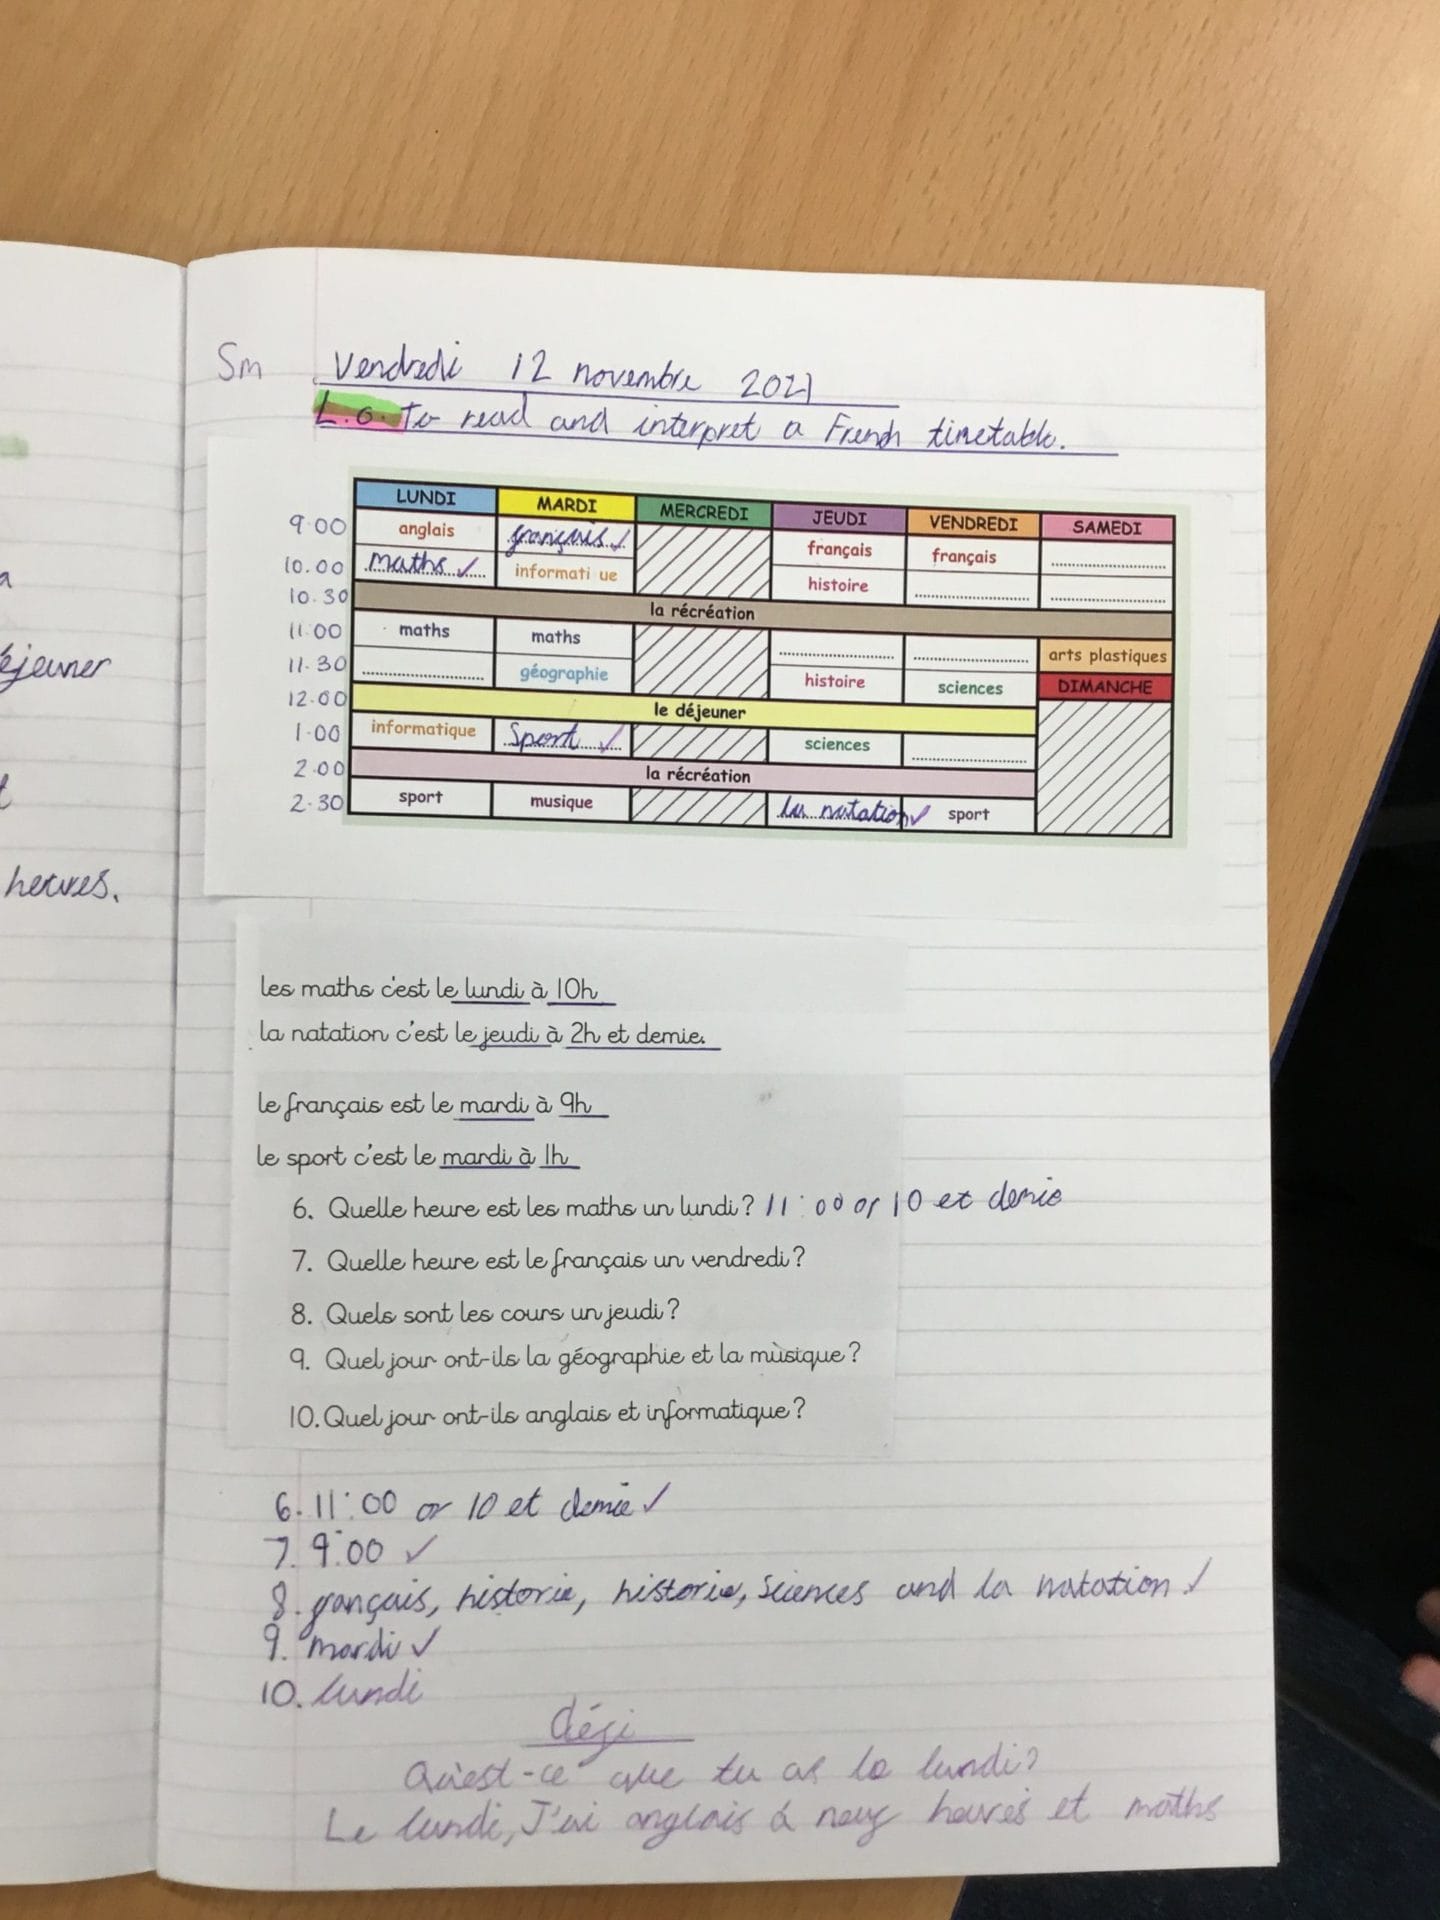 éjeuner
heures.
Sm
Vendredi 12 novembre 2021
L.O. To read and interpret a French timetable.
LUNDI MARDI MERCREDI JEUDI VENDREDI SAMEDI
9:00 anglais français ✓ français français
10.00 maths ✓ informati ue histoire
10.30 la récréation
11:00 maths maths arts plastiques
11.30 géographie histoire sciences DIMANCHE
12.00 le déjeuner
1.00 informatique Sport ✓ sciences
2.00 la récréation
2.30 sport musique la natation ✓ sport
les maths c'est le lundi à 10h
la natation c'est le jeudi à 2h et demie.
le français est le mardi à 9h
le sport c'est le mardi à 1h
6. Quelle heure est les maths un lundi? 11:00 or 10 et demie
7. Quelle heure est le français un vendredi?
8. Quels sont les cours un jeudi?
9. Quel jour ont-ils la géographie et la musique?
10. Quel jour ont-ils anglais et informatique?
6. 11:00 or 10 et demie ✓
7. 9:00 ✓
8. français, historie, historie, sciences and la natation ✓
9. mardi ✓
10. lundi
défi
Qu'est-ce que tu as le lundi?
Le lundi, J'ai anglais à neuf heures et maths